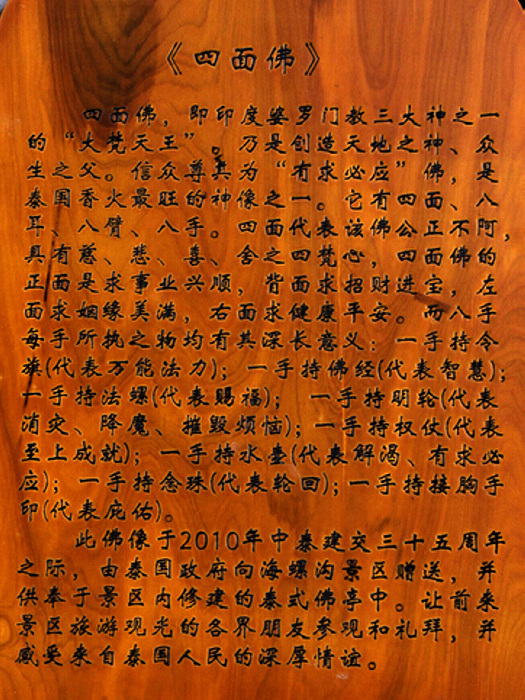 《四面佛》
四面佛，即印度婆罗门教三大神之一
的“大梵天王”。乃是创造天地之神、众
生之父。信众尊其为“有求必应”佛，是
泰国香火最旺的神像之一。它有四面、八
耳、八臂、八手。四面代表该佛公正不阿，
具有慈、悲、喜、舍之四梵心，四面佛的
正面是求事业兴顺，背面求招财进宝，左
面求姻缘美满，右面求健康平安。而八手
每手所执之物均有其深长意义：一手持令
旗(代表万能法力)；一手持佛经(代表智慧)；
一手持法螺(代表赐福)；一手持明轮(代表
消灾、降魔、摧毁烦恼)；一手持权仗(代表
至上成就)；一手持水壶(代表解渴、有求必
应)；一手持念珠(代表轮回)；一手持接胸手
印(代表庇佑)。
此佛像于2010年中泰建交三十五周年
之际，由泰国政府向海螺沟景区赠送，并
供奉于景区内修建的泰式佛亭中。让前来
景区旅游观光的各界朋友参观和礼拜，并
感受来自泰国人民的深厚情谊。